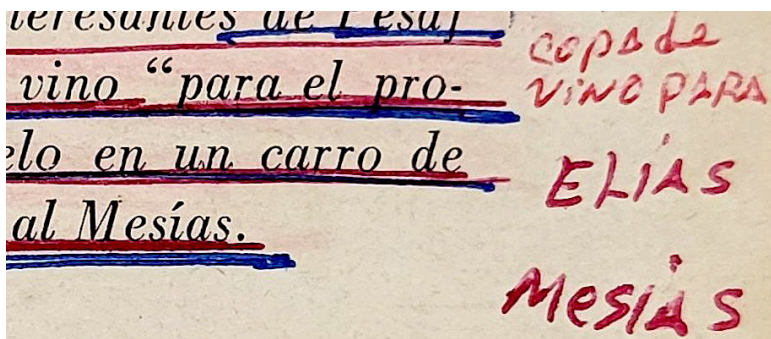 teresantes de Pesaj
vino “para el pro-
elo en un carro de
al Mesías.
copa de
VINO PARA
ELIAS
Mesias